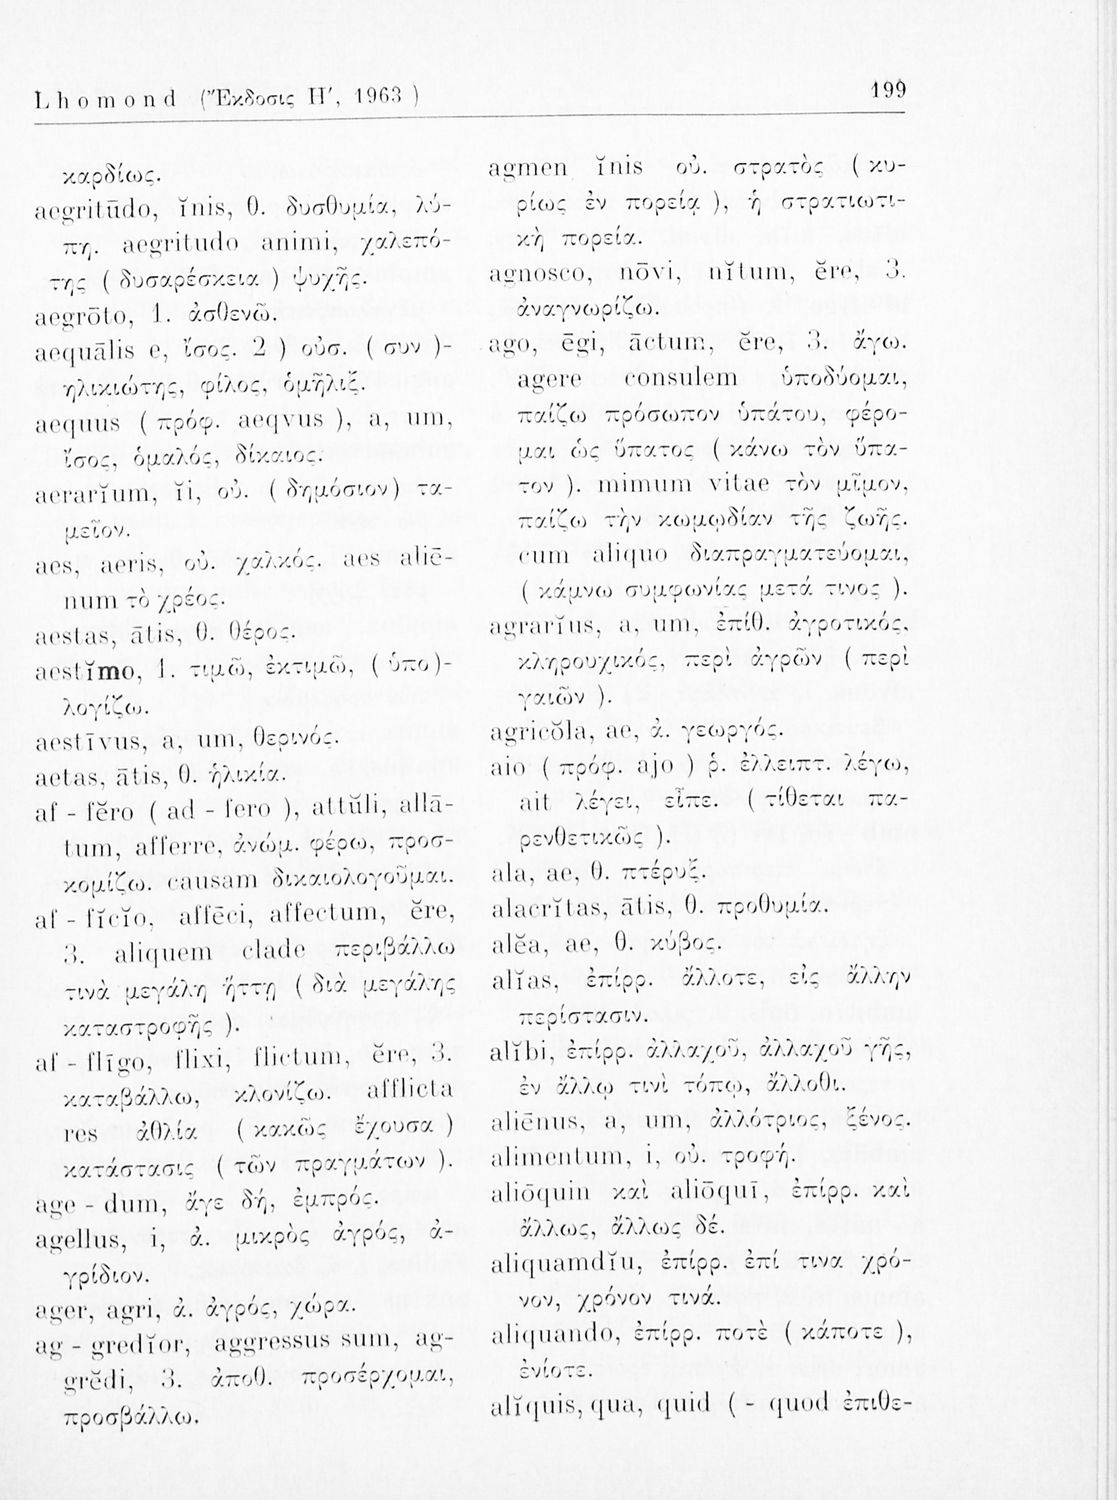 Lhomond (Ἔκδοσις Η΄, 1963 )
199
καρδίως.
aegritūdo, ĭnis, θ. δυσθυμία, λύ-
πη. aegritudo animi, χαλεπό-
της ( δυσαρέσκεια ) ψυχῆς.
aegrōto, 1. ἀσθενῶ.
aequālis e, ἴσος. 2 ) οὐσ. ( συν )-
ηλικιώτης, φίλος, ὁμῆλιξ.
aequus ( πρόφ. aeqvus ), a, um,
ἴσος, ὁμαλός, δίκαιος.
aerarĭum, ĭi, οὐ. ( δημόσιον) τα-
μεῖον.
aes, aeris, οὐ. χαλκός. aes aliē-
num τὸ χρέος.
aestas, ātis, θ. θέρος.
aestĭmo, 1. τιμῶ, ἐκτιμῶ, ( ὑπο)-
λογίζω.
aestīvus, a, um, θερινός.
aetas, ātis, θ. ἡλικία.
af - fĕro ( ad - fero ), attŭli, allā-
tum, afferre, ἀνώμ. φέρω, προσ-
κομίζω. causam δικαιολογοῦμαι.
af - fĭcĭo, affēci, affectum, ĕre,
3. aliquem clade περιβάλλω
τινὰ μεγάλη ἥττῃ ( διὰ μεγάλης
καταστροφῆς ).
af - flīgo, flixi, flictum, ĕre, 3.
καταβάλλω, κλονίζω. afflicta
res ἀθλία ( κακῶς ἔχουσα )
κατάστασις ( τῶν πραγμάτων ).
age - dum, ἄγε δή, ἐμπρός.
agellus, i, ἀ. μικρὸς ἀγρός, ἀ-
γρίδιον.
ager, agri, ἀ. ἀγρός, χώρα.
ag - gredĭor, aggressus sum, ag-
grĕdi, 3. ἀποθ. προσέρχομαι,
προσβάλλω.
agmen ĭnis οὐ. στρατὸς ( κυ-
ρίως ἐν πορείᾳ ), ἡ στρατιωτι-
κὴ πορεία.
agnosco, nōvi, nĭtum, ĕre, 3.
ἀναγνωρίζω.
ago, ēgi, āctum, ĕre, 3. ἄγω.
agere consulem ὑποδύομαι,
παίζω πρόσωπον ὑπάτου, φέρο-
μαι ὡς ὕπατος ( κάνω τὸν ὕπα-
τον ). mimum vitae τὸν μῖμον,
παίζω τὴν κωμῳδίαν τῆς ζωῆς.
cum aliquo διαπραγματεύομαι,
( κάμνω συμφωνίας μετά τινος ).
agrarĭus, a, um, ἐπίθ. ἀγροτικός,
κληρουχικός, περὶ ἀγρῶν ( περὶ
γαιῶν ).
agricŏla, ae, ἀ. γεωργός.
aio ( πρόφ. ajo ) ῥ. ἐλλειπτ. λέγω,
ait λέγει, εἶπε. ( τίθεται πα-
ρενθετικῶς ).
ala, ae, θ. πτέρυξ.
alacrĭtas, ātis, θ. προθυμία.
alĕa, ae, θ. κύβος.
alĭas, ἐπίρρ. ἄλλοτε, εἰς ἄλλην
περίστασιν.
alĭbi, ἐπίρρ. ἀλλαχοῦ, ἀλλαχοῦ γῆς,
ἐν ἄλλῳ τινὶ τόπῳ, ἄλλοθι.
aliēnus, a, um, ἀλλότριος, ξένος.
alimentum, i, οὐ. τροφή.
aliōquin καὶ aliōquī, ἐπίρρ. καὶ
ἄλλως, ἄλλως δέ.
aliquamdĭu, ἐπίρρ. ἐπί τινα χρό-
νον, χρόνον τινά.
aliquando, ἐπίρρ. ποτὲ ( κάποτε ),
ἐνίοτε.
alĭquis, qua, quid ( - quod ἐπιθε-